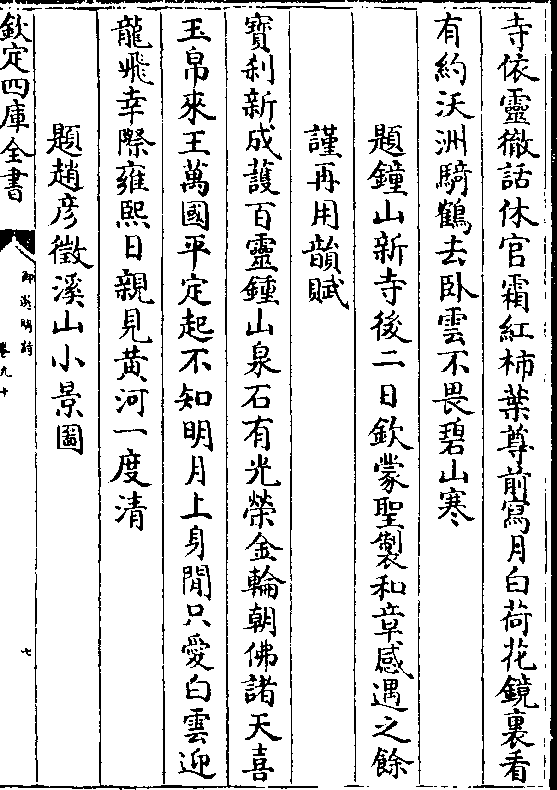 寺依靈徹話休官霜紅柿葉尊前寫月白荷花鏡裏看
有約沃洲騎鶴去卧雲不畏碧山寒
題鐘山新寺後二日欽蒙聖製和章感遇之餘
謹再用韻賦
寶刹新成䕶百靈鍾山泉石有光榮金輪朝佛諸天喜
玉帛來王萬國平定起不知明月上身閒只愛白雲迎
龍飛幸際雍熙日親見黄河一度清
題趙彦徵溪山小景圖
欽定四庫全書
御選明詩
卷九十
七